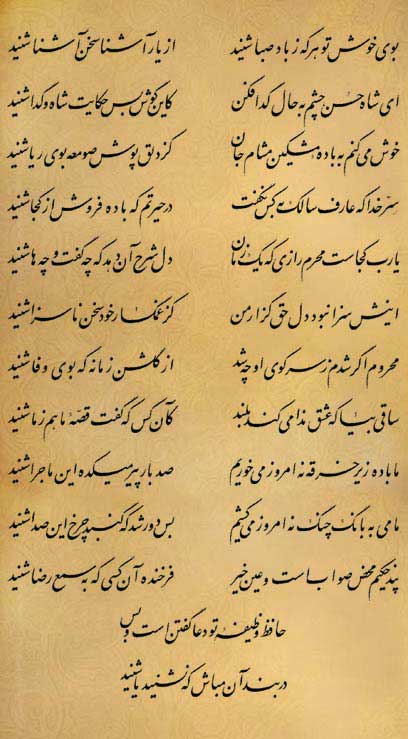 بوی خوش تو هر که ز باد صبا شنید از یار آشنا سخن آشنا شنید
ای شاه حسن چشم به حال گدا فکن کاین گوش بس حکایت شاه و گدا شنید
خوش می کنم به باده مشکین مشام جان کز دلق پوش صومعه بوی ریا شنید
سر خدا که عارف سالک به کس نگفت در حیرتم که باده فروش از کجا شنید
یا رب کجاست محرم رازی که یک زمان دل شرح آن دهد که چه گفت و چه ها شنید
اینش سزا نبود دل حق گزار من کز غمگسار خود سخن ناسزا شنید
محروم اگر شدم ز سر کوی او چه شد از گلشن زمانه که بوی وفا شنید
ساقی بیا که عشق ندا می کند بلند کان کس که گفت قصه ما هم ز ما شنید
ما باده زیر خرقه نه امروز می خوریم صد بار پیر میکده این ماجرا شنید
ما می به بانگ چنگ نه امروز می کشیم بس دور شد که گنبد چرخ این صدا شنید
پند حکیم محض صواب است و عین خیر فرخنده آن کسی که به سمع رضا شنید
حافظ وظیفه تو دعا گفتن است و بس
دربند آن مباش که نشنید یا شنید